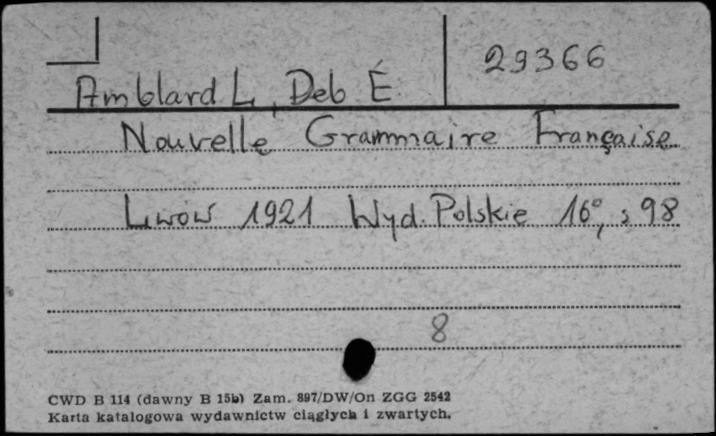 29366
Amblard L, Deb É
Nouvelle Grammaire Française
Lwów 1921 Wyd. Polskie 16°, s 98
8
CWD B 114 (dawny B 15b) Zam. 897/DW/On ZGG 2542
Karta katalogowa wydawnictw ciągłych i zwartych.